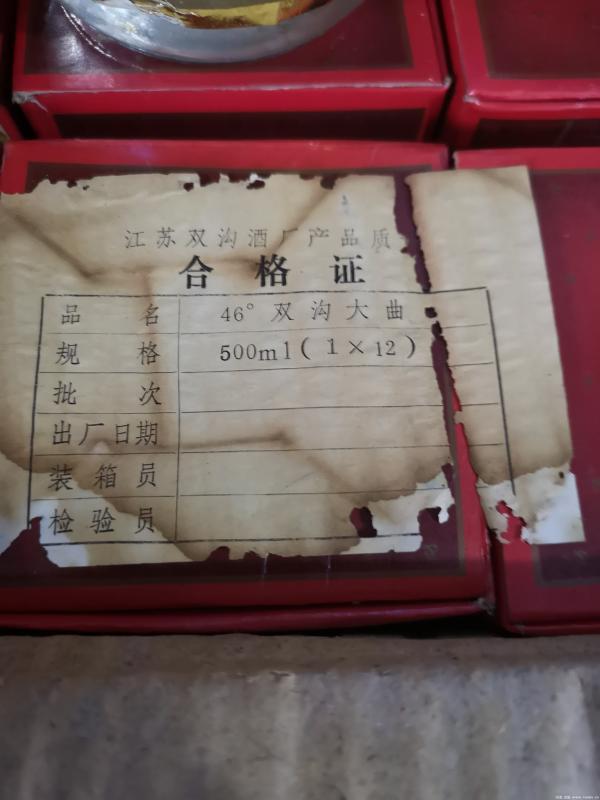 江苏双沟酒厂产品质
合格证
品名 46° 双沟大曲
规格 500ml(1×12)
批次
出厂日期
装箱员
检验员